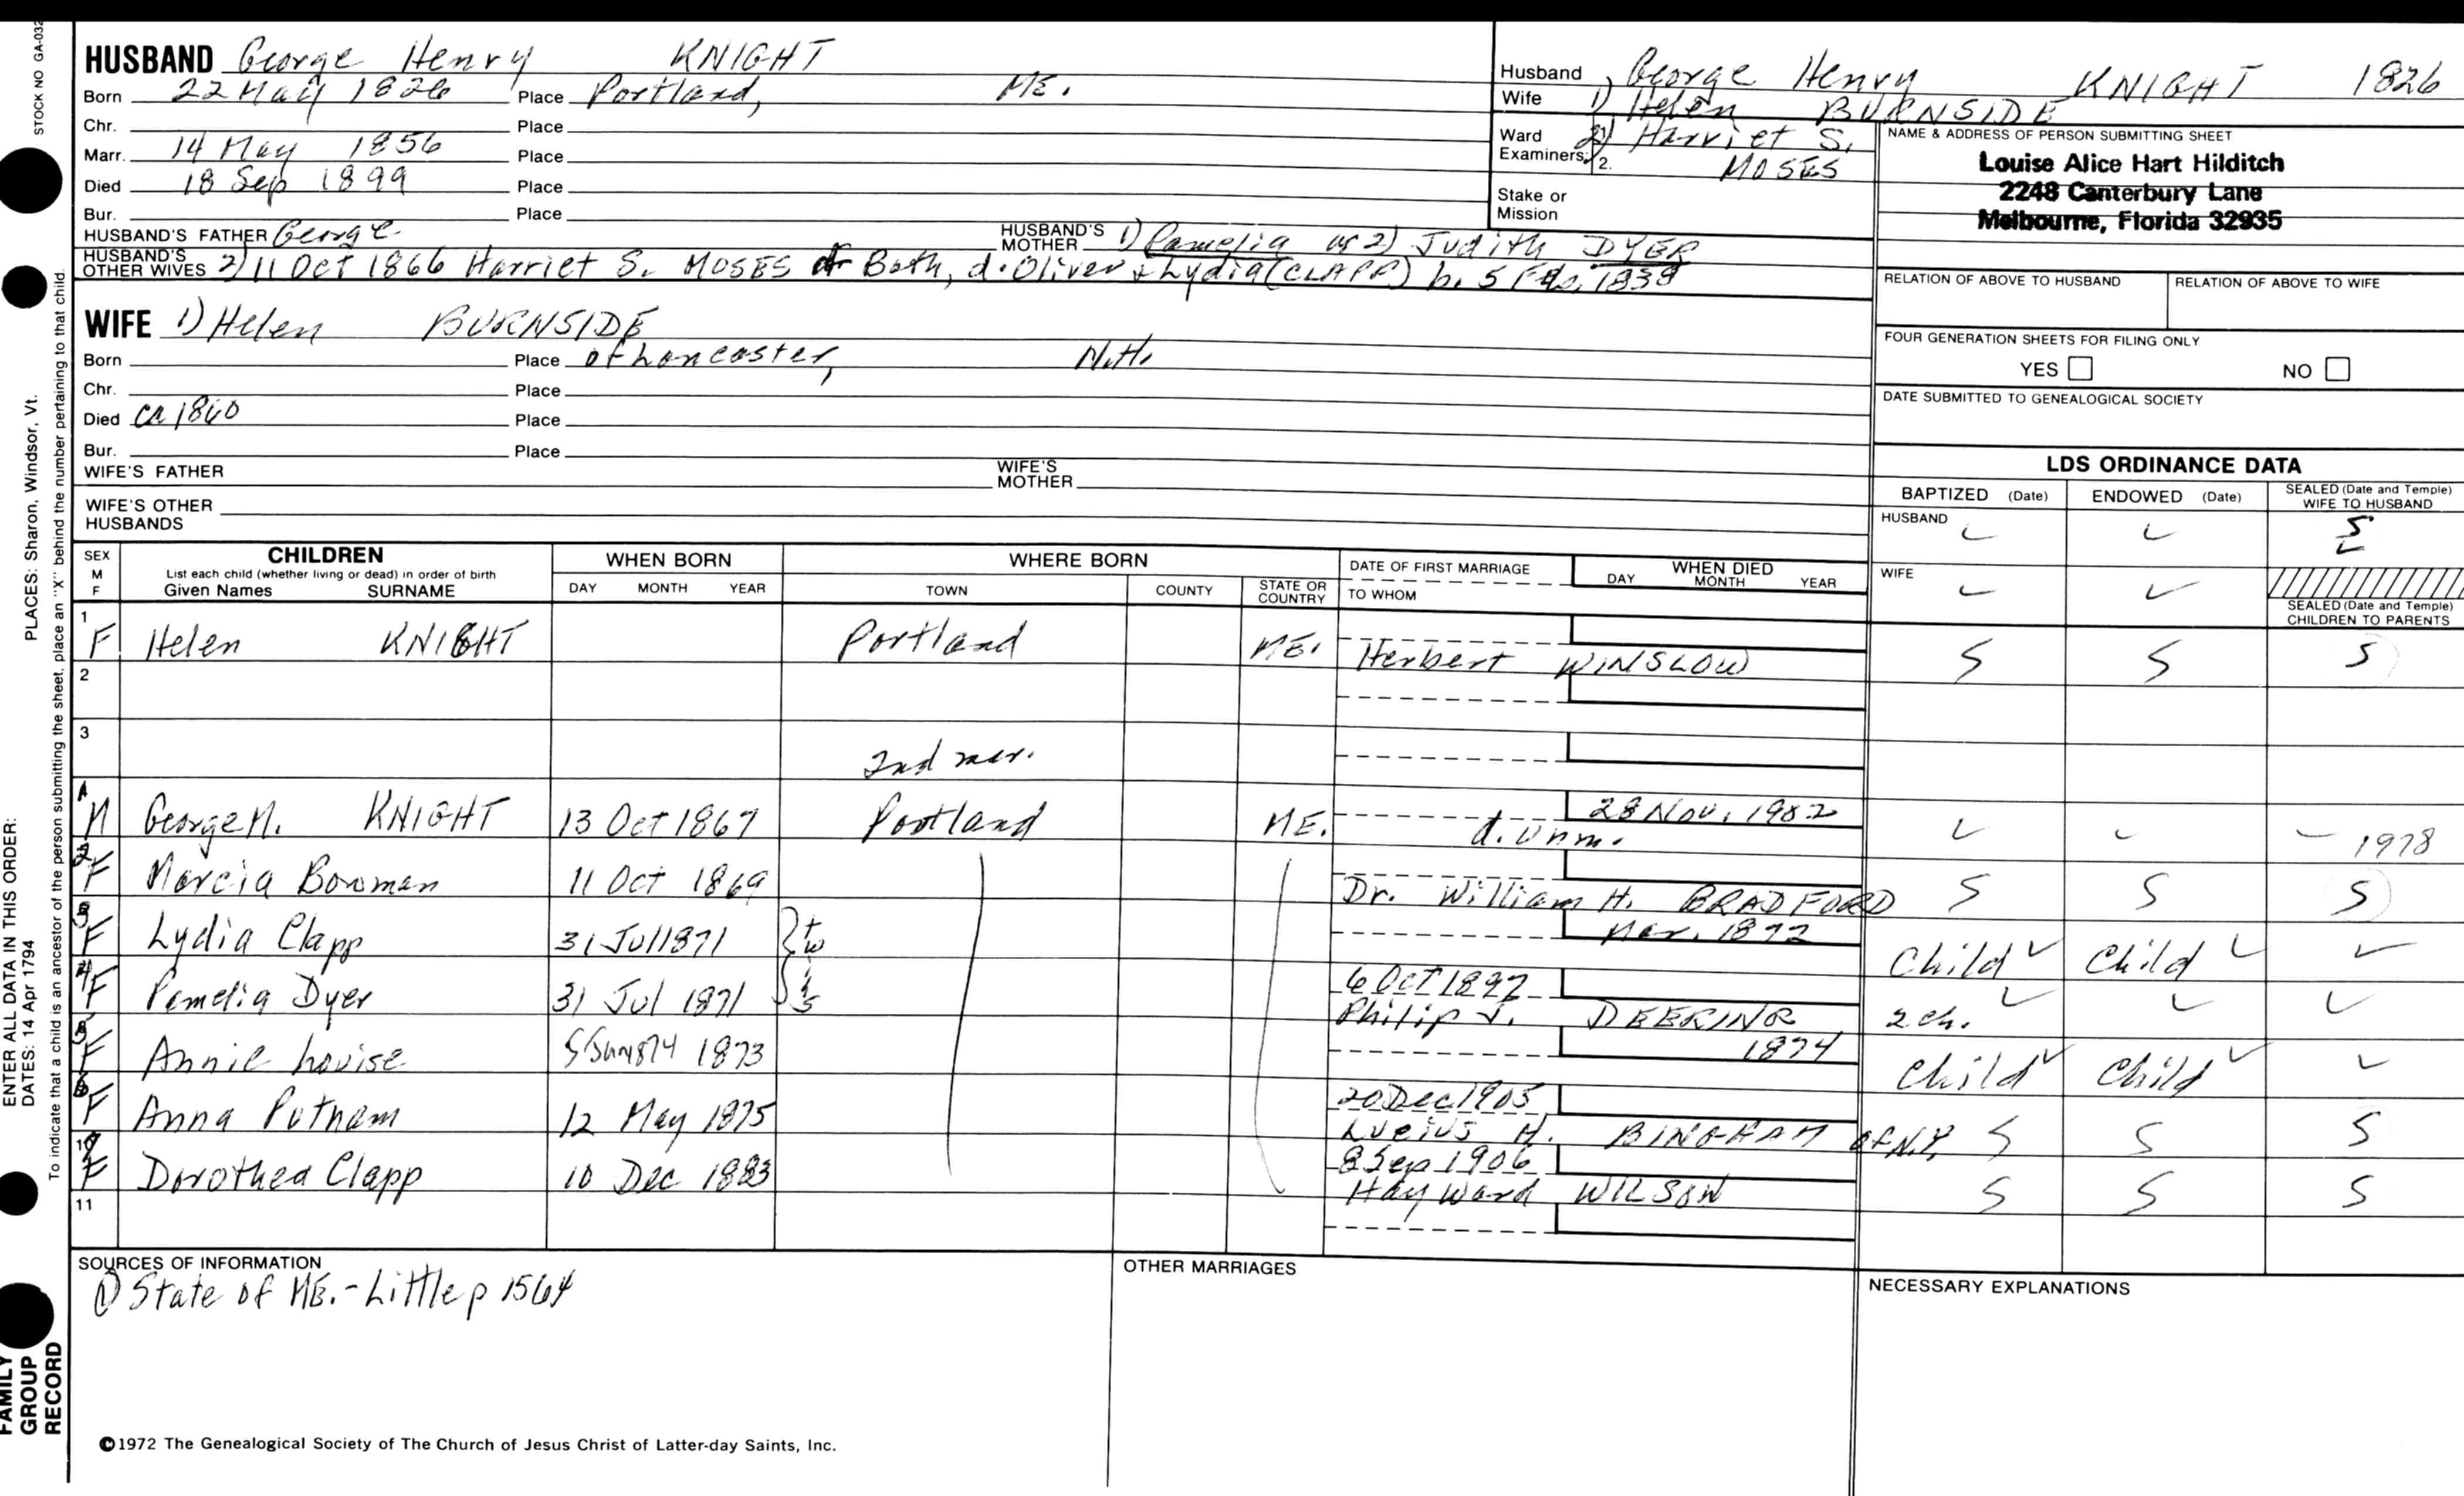 STOCK NO GA-032
PLACES: Sharon, Windsor, Vt.
ENTER ALL DATA IN THIS ORDER:
DATES: 14 Apr 1794
To indicate that a child is an ancestor of the person submitting the sheet, place an "X" behind the number pertaining to that child.
FAMILY
GROUP
RECORD
HUSBAND George Henry KNIGHT
Born 22 May 1826 Place Portland, ME.
Chr. Place
Marr. 14 May 1856 Place
Died 18 Sep 1899 Place
Bur. Place
HUSBAND'S FATHER George HUSBAND'S MOTHER 1) Pamelia or 2) Judith DYER
HUSBAND'S OTHER WIVES 2) 11 Oct 1866 Harriet S. MOSES of Bath, d. Oliver & Lydia (CLAPP) b. 5 Feb. 1838
WIFE 1) Helen BURNSIDE
Born Place of Lancaster, N.H.
Chr. Place
Died ca 1860 Place
Bur. Place
WIFE'S FATHER WIFE'S MOTHER
WIFE'S OTHER HUSBANDS
Husband George Henry KNIGHT 1826
Wife 1) Helen BURNSIDE
Ward 2) Harriet S.
Examiners: 2. MOSES
Stake or Mission
NAME & ADDRESS OF PERSON SUBMITTING SHEET
Louise Alice Hart Hilditch
2248 Canterbury Lane
Melbourne, Florida 32935
RELATION OF ABOVE TO HUSBAND RELATION OF ABOVE TO WIFE
FOUR GENERATION SHEETS FOR FILING ONLY
YES NO
DATE SUBMITTED TO GENEALOGICAL SOCIETY
LDS ORDINANCE DATA
BAPTIZED (Date) ENDOWED (Date) SEALED (Date and Temple) WIFE TO HUSBAND
HUSBAND S
WIFE
SEALED (Date and Temple) CHILDREN TO PARENTS
SEX M F CHILDREN WHEN BORN WHERE BORN DATE OF FIRST MARRIAGE WHEN DIED
List each child (whether living or dead) in order of birth
Given Names SURNAME DAY MONTH YEAR TOWN COUNTY STATE OR COUNTRY TO WHOM DAY MONTH YEAR
1 F Helen KNIGHT Portland ME. Herbert WINSLOW S S S
2
3 2nd mar.
1 M George M. KNIGHT 13 Oct 1867 Portland ME. 28 Nov. 1902 d. unm. 1978
2 F Marcia Bowman 11 Oct 1869 Dr. William H. BRADFORD S S S
3 F Lydia Clapp 31 Jul 1871 twins Mar. 1872 Child Child
4 F Pamelia Dyer 31 Jul 1871 6 Oct 1897 Philip J. DEERING 2 ch.
5 F Annie Louise 1873 1874 Child Child
6 F Anna Putnam 12 May 1875 20 Dec 1905 Lucius H. BINGHAM of N.Y. S S S
10 F Dorothea Clapp 10 Dec 1883 8 Sep 1906 Hayward WILSON S S S
11
SOURCES OF INFORMATION OTHER MARRIAGES NECESSARY EXPLANATIONS
① State of ME. - Little p 1564
©1972 The Genealogical Society of The Church of Jesus Christ of Latter-day Saints, Inc.